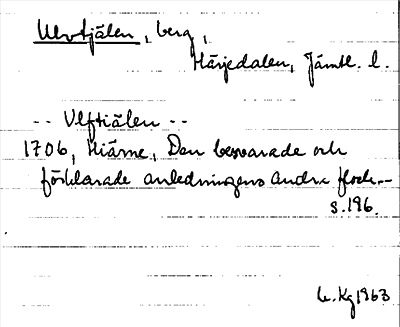 Ulvtjälen, berg,
Härjedalen, Jämtl. l.
-- Vlftiälen --
1706, Hiärne, Den besvarade och
förklarade anledningens andra flock --
s. 196.
Kg 1963